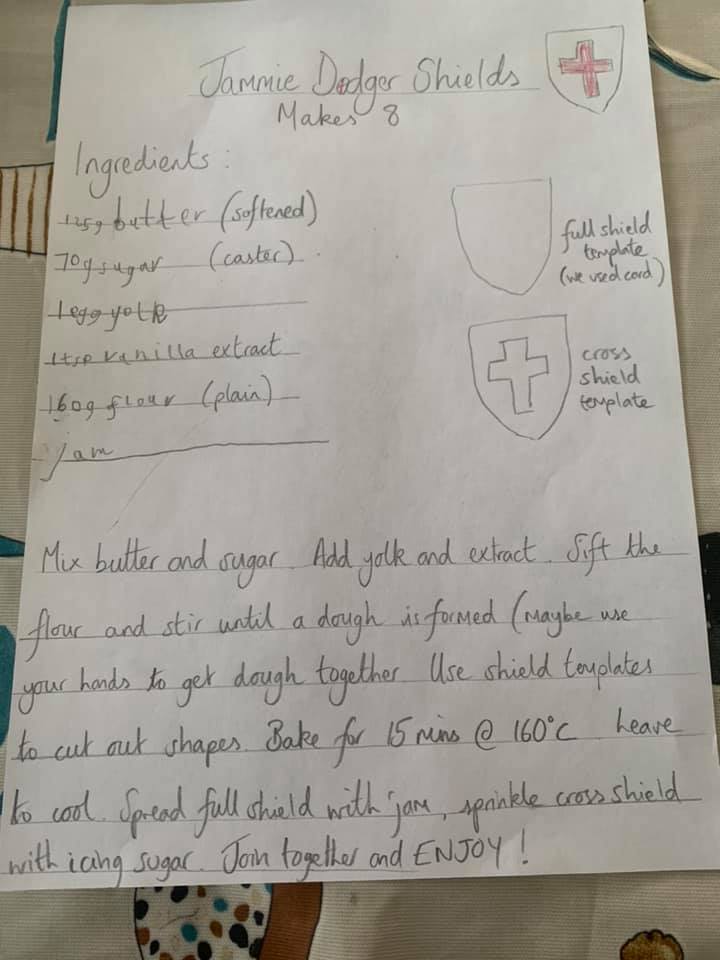 Jammie Dodger Shields
Makes 8
Ingredients:
125g butter (softened)
70g sugar (caster)
1 egg yolk
1 tsp vanilla extract
160g flour (plain)
jam
full shield
template
(we used card)
cross
shield
template
Mix butter and sugar. Add yolk and extract. Sift the
flour and stir until a dough is formed (Maybe use
your hands to get dough together Use shield templates
to cut out shapes. Bake for 15 mins @ 160°C Leave
to cool. Spread full shield with jam, sprinkle cross shield
with icing sugar. Join together and ENJOY!